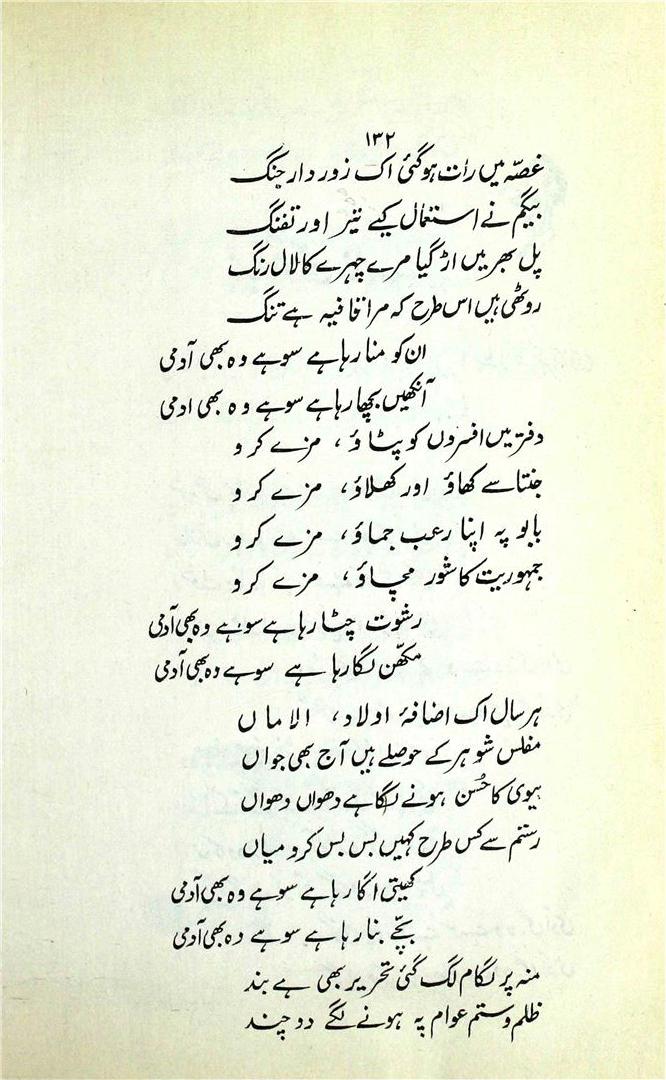 ۱۳۲
غصّہ میں رات ہوگئی اک زور دار جنگ
بیگم نے استعمال کیے تیر اور تفنگ
پل بھر میں اڑ گیا مرے چہرے کا لال رنگ
روٹھی ہیں اس طرح کہ مرا قافیہ ہے تنگ
ان کو منا رہا ہے سو ہے وہ بھی آدمی
آنکھیں بچھا رہا ہے سو ہے وہ بھی ادمی
دفتر میں افسروں کو پٹاؤ، مزے کرو
جنتا سے کھاؤ اور کھلاؤ، مزے کرو
بابو پہ اپنا رعب جماؤ، مزے کرو
جمہوریت کا شور مچاؤ، مزے کرو
رشوت چٹا رہا ہے سو ہے وہ بھی آدمی
مکھّن لگا رہا ہے سو ہے وہ بھی آدمی
ہر سال اک اضافۂ اولاد، الاماں
مفلس شوہر کے حوصلے ہیں آج بھی جواں
بیوی کا حُسن ہونے لگا ہے دھواں دھواں
رستم سے کس طرح کہیں بس بس کرو میاں
کھیتی اگا رہا ہے سو ہے وہ بھی آدمی
بچّے بنا رہا ہے سو ہے وہ بھی آدمی
منہ پر لگام لگ گئی تحریر بھی ہے بند
ظلم و ستم عوام پہ ہونے لگے دو چند